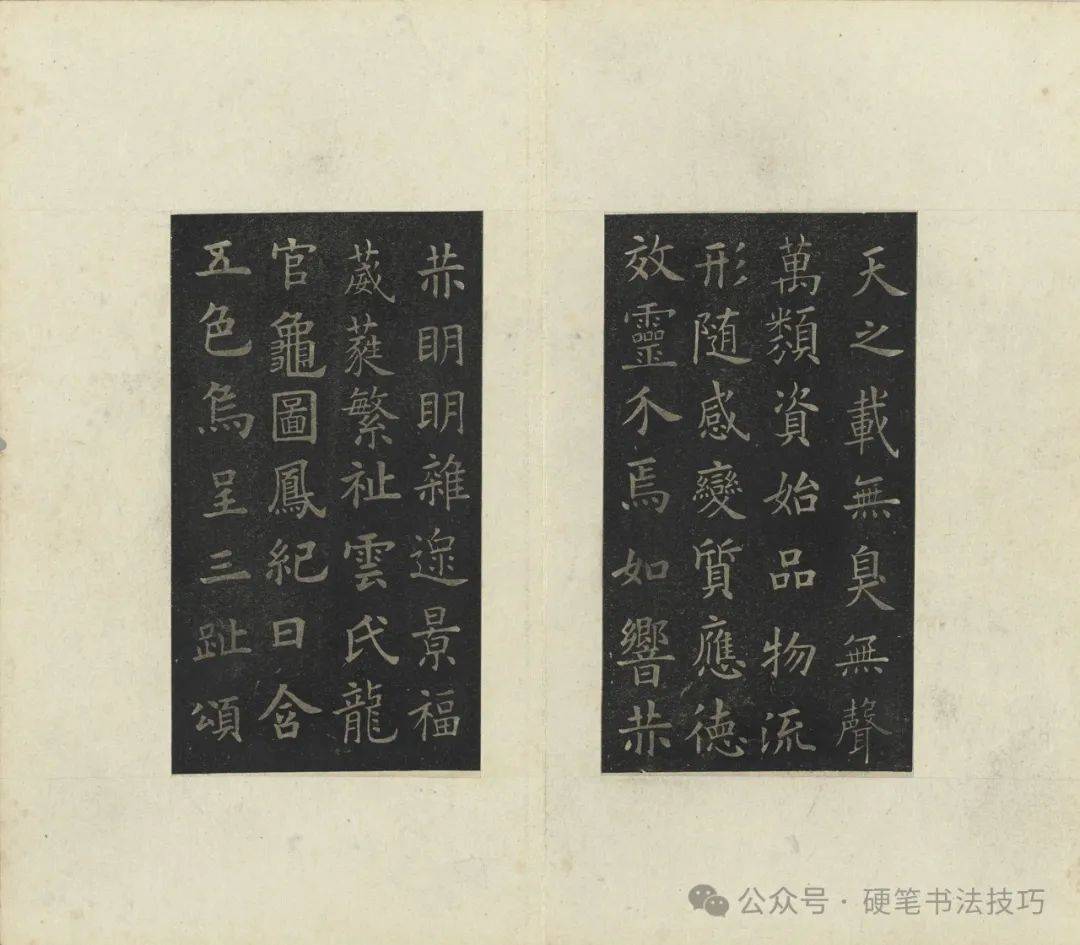 天之載無臭無聲
萬類資始品物流
形隨感變質應德
效靈介焉如響赫
赫明明雜遝景福
葳蕤繁祉雲氏龍
官龜圖鳳紀日含
五色烏呈三趾頌
公众号·硬笔书法技巧